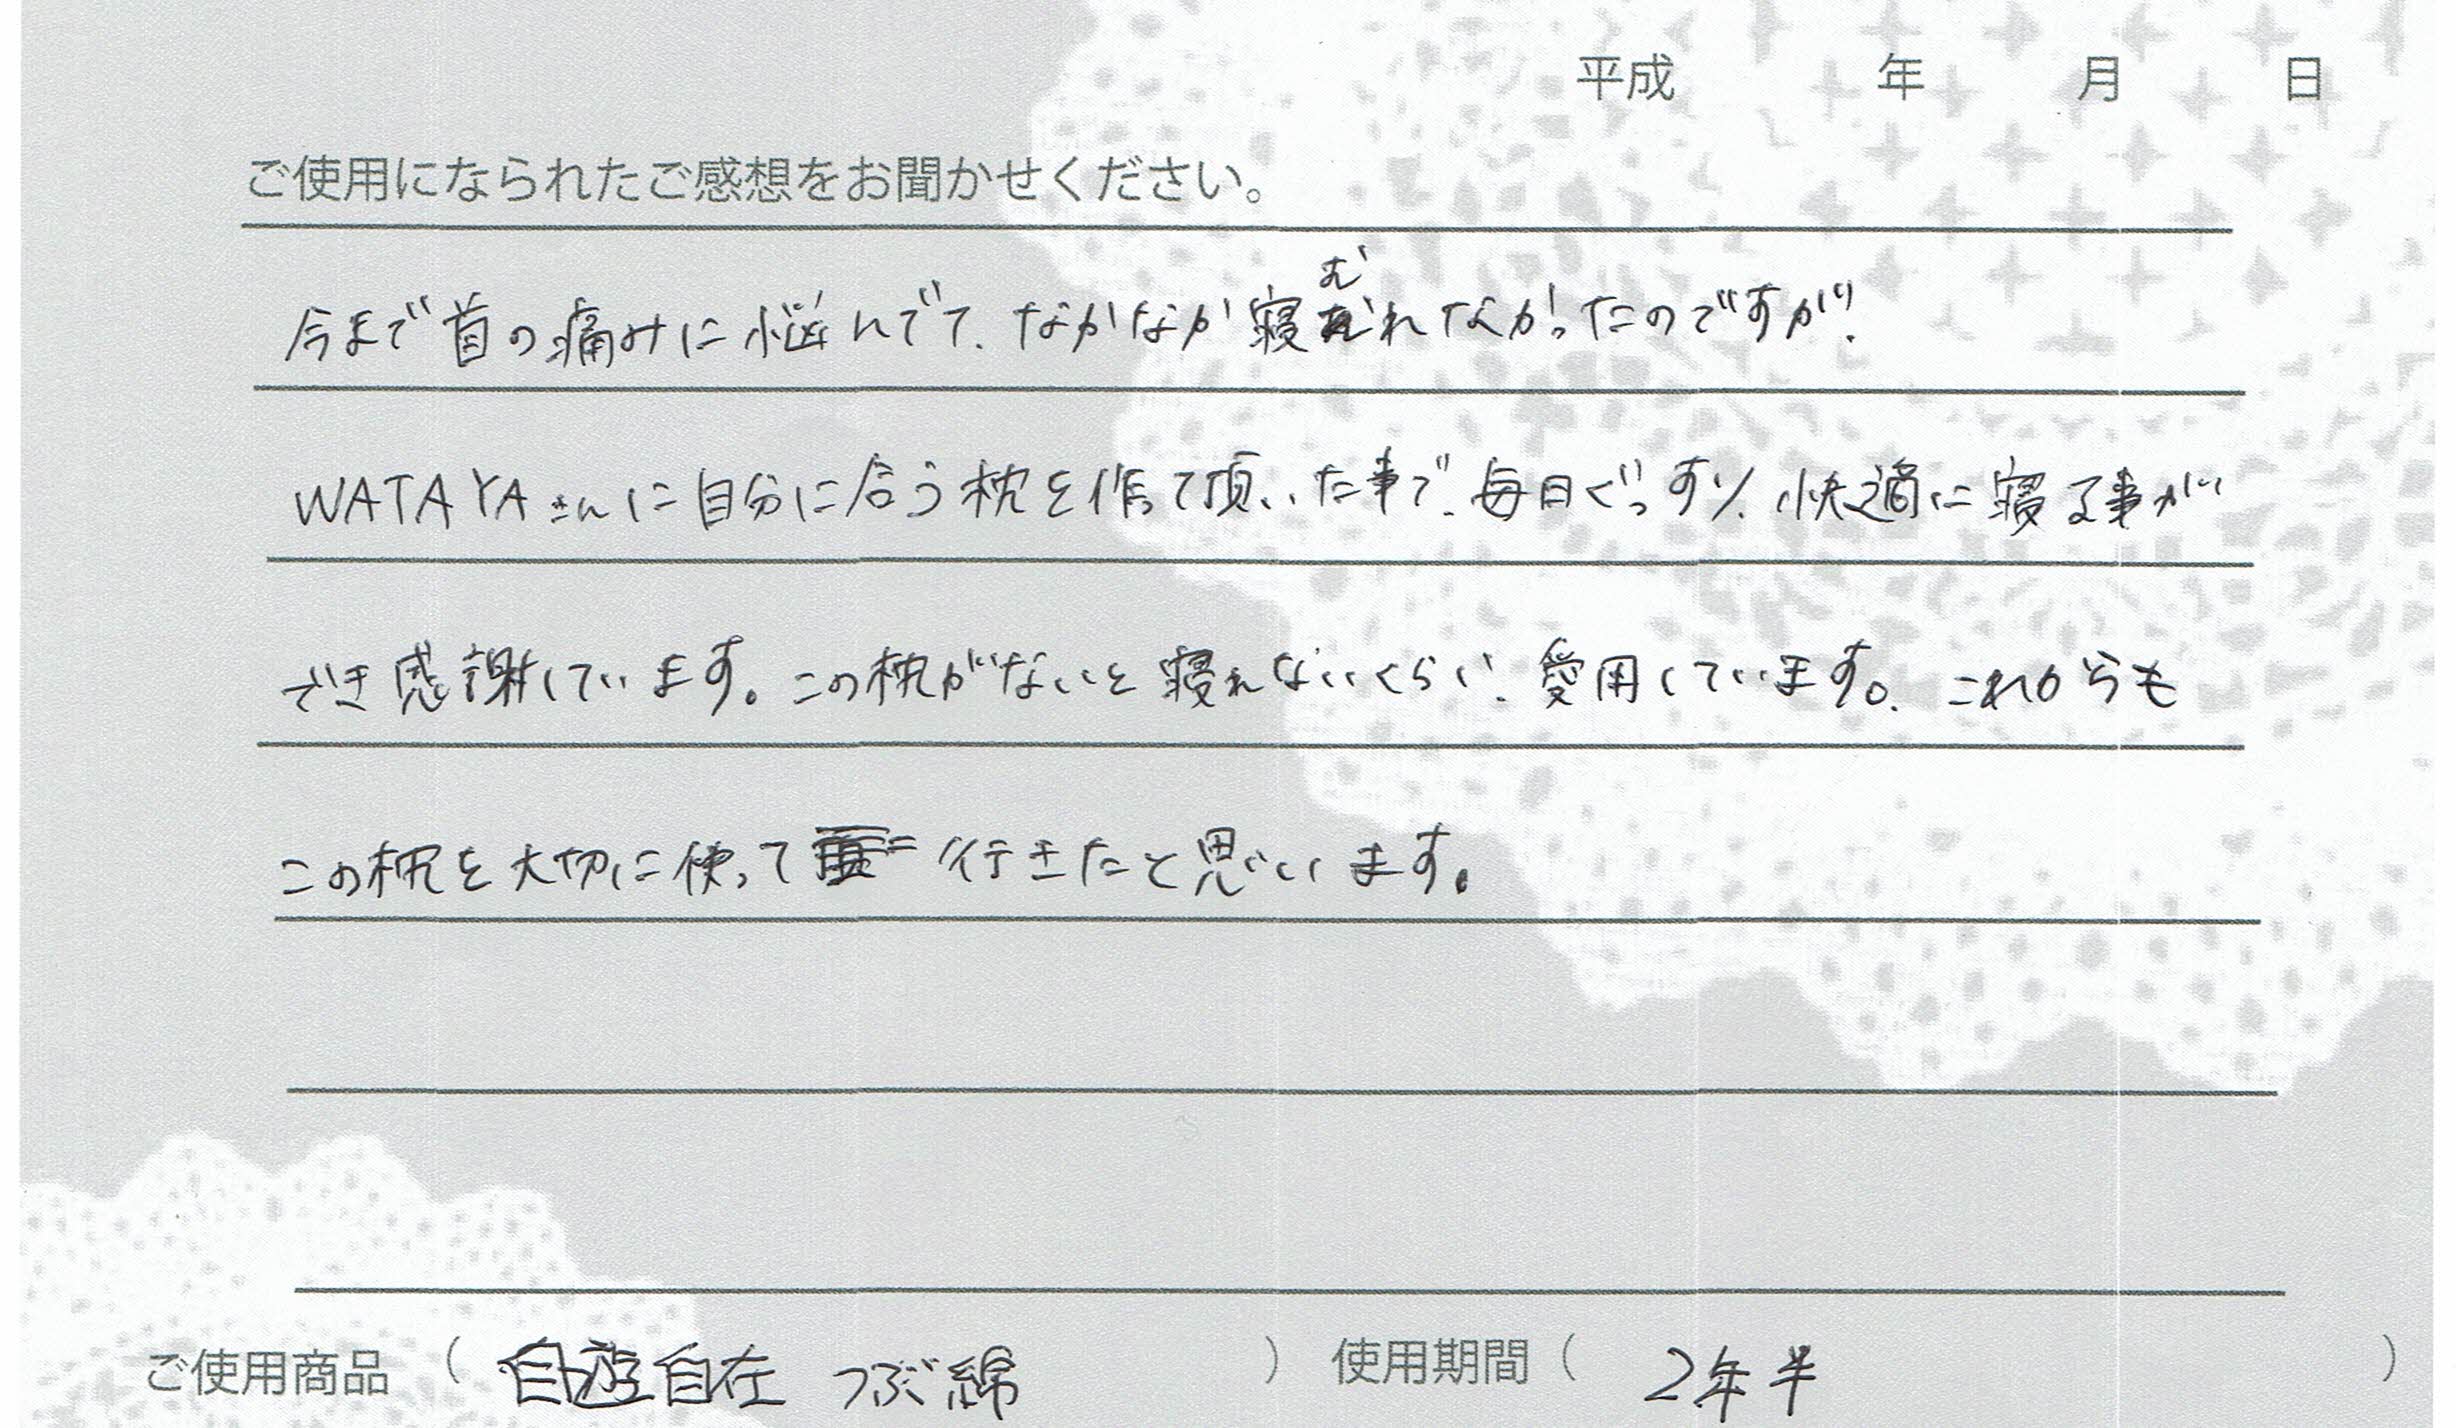 平成 年 月 日
ご使用になられたご感想をお聞かせください。
今まで首の痛みに悩んでて、なかなか寝むれなかったのですが、
WATAYAさんに自分に合う枕を作って頂いた事で、毎日ぐっすり、快適に寝る事が
でき感謝しています。この枕がないと寝れないくらい、愛用しています。これからも
この枕を大切に使って行きたと思いいます。
ご使用商品 ( 自遊自在 つぶ綿 ) 使用期間 ( 2年半 )